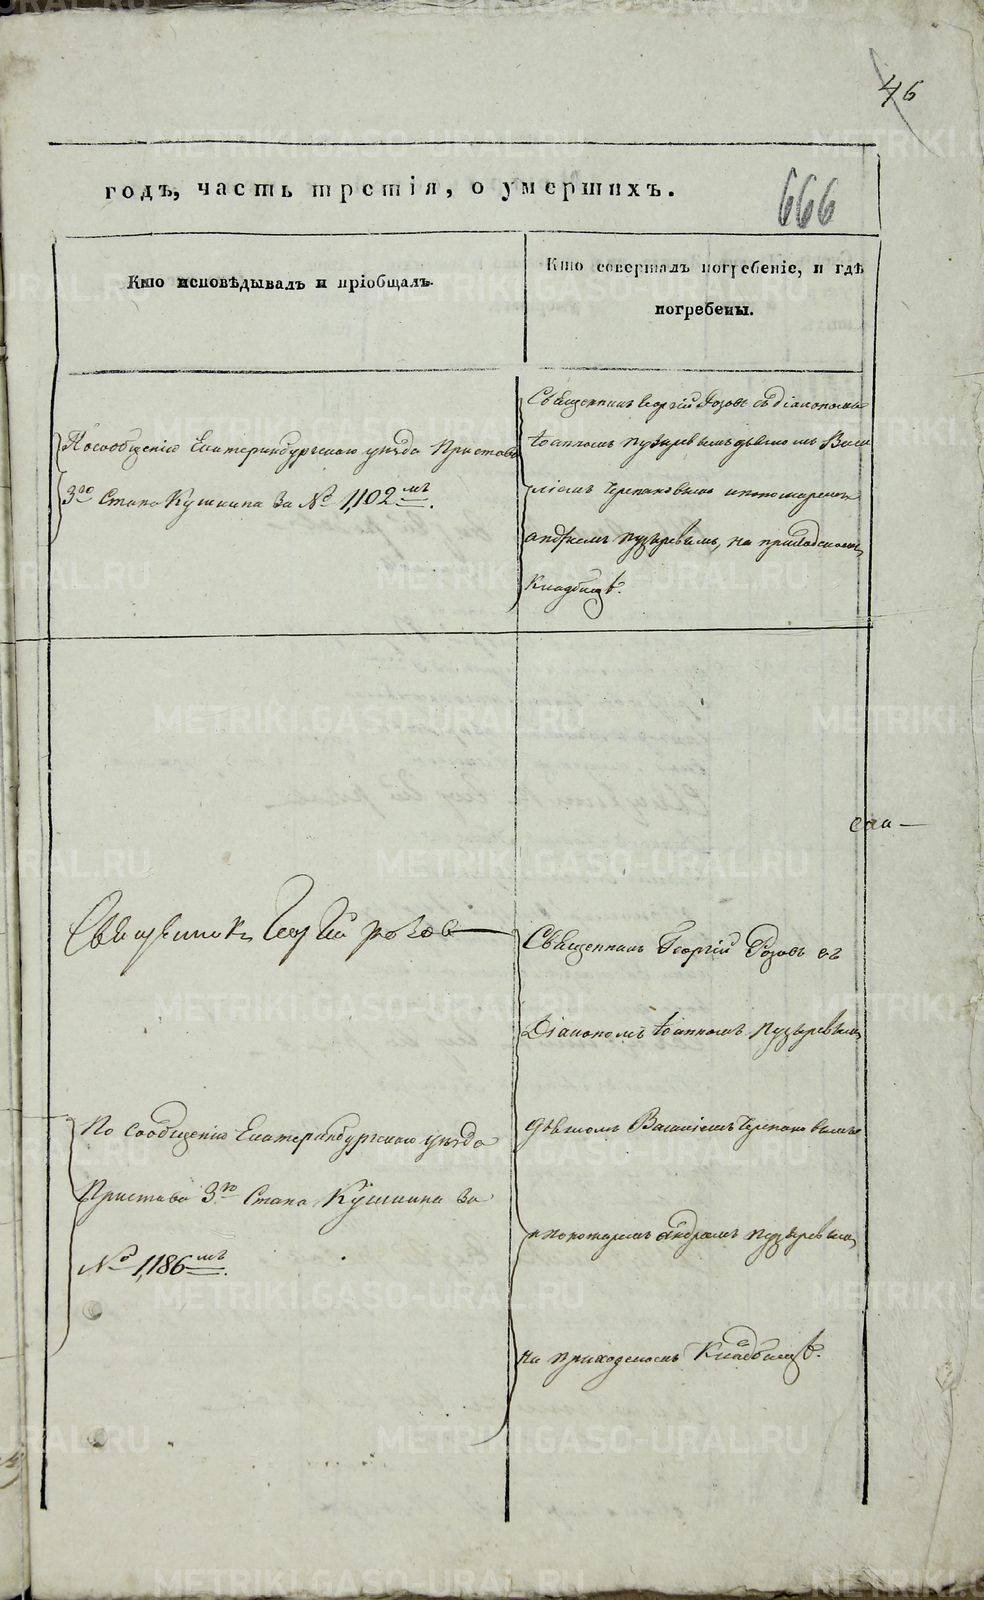 46
годъ, часть третія, о умершихъ.
666
Кто исповѣдывалъ и пріобщалъ.
Кто совершалъ погребеніе, и гдѣ
погребены.
По сообщенію Екатеринбургскаго уѣзда Пристава
3го Стана Кушкина за № 1,102мъ.
Священникъ Георгій Розовъ съ діакономъ
Іоанномъ Пузыревымъ дьячкомъ Васи
ліемъ Черепановымъ и пономаремъ
Андреемъ Пузыревымъ, на приходскомъ
Кладбищѣ.
Священникъ Георгій Розовъ
По сообщенію Екатеринбургскаго уѣзда
Пристава 3го Стана Кушкина за
№ 1,186мъ.
Священникъ Георгій Розовъ съ
Діакономъ Іоанномъ Пузыревымъ
дьячкомъ Василіемъ Черепановымъ
и пономаремъ Андреемъ Пузыревымъ,
на приходскомъ Кладбищѣ.
METRIKI.GASO-URAL.RU